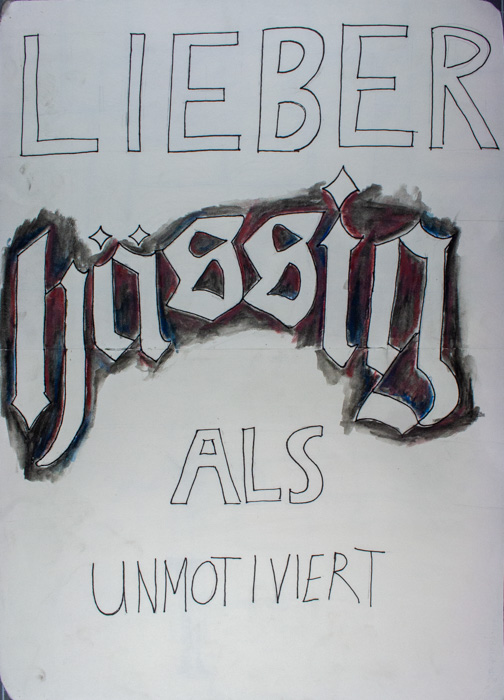 LIEBER
hässig
ALS
UNMOTIVIERT